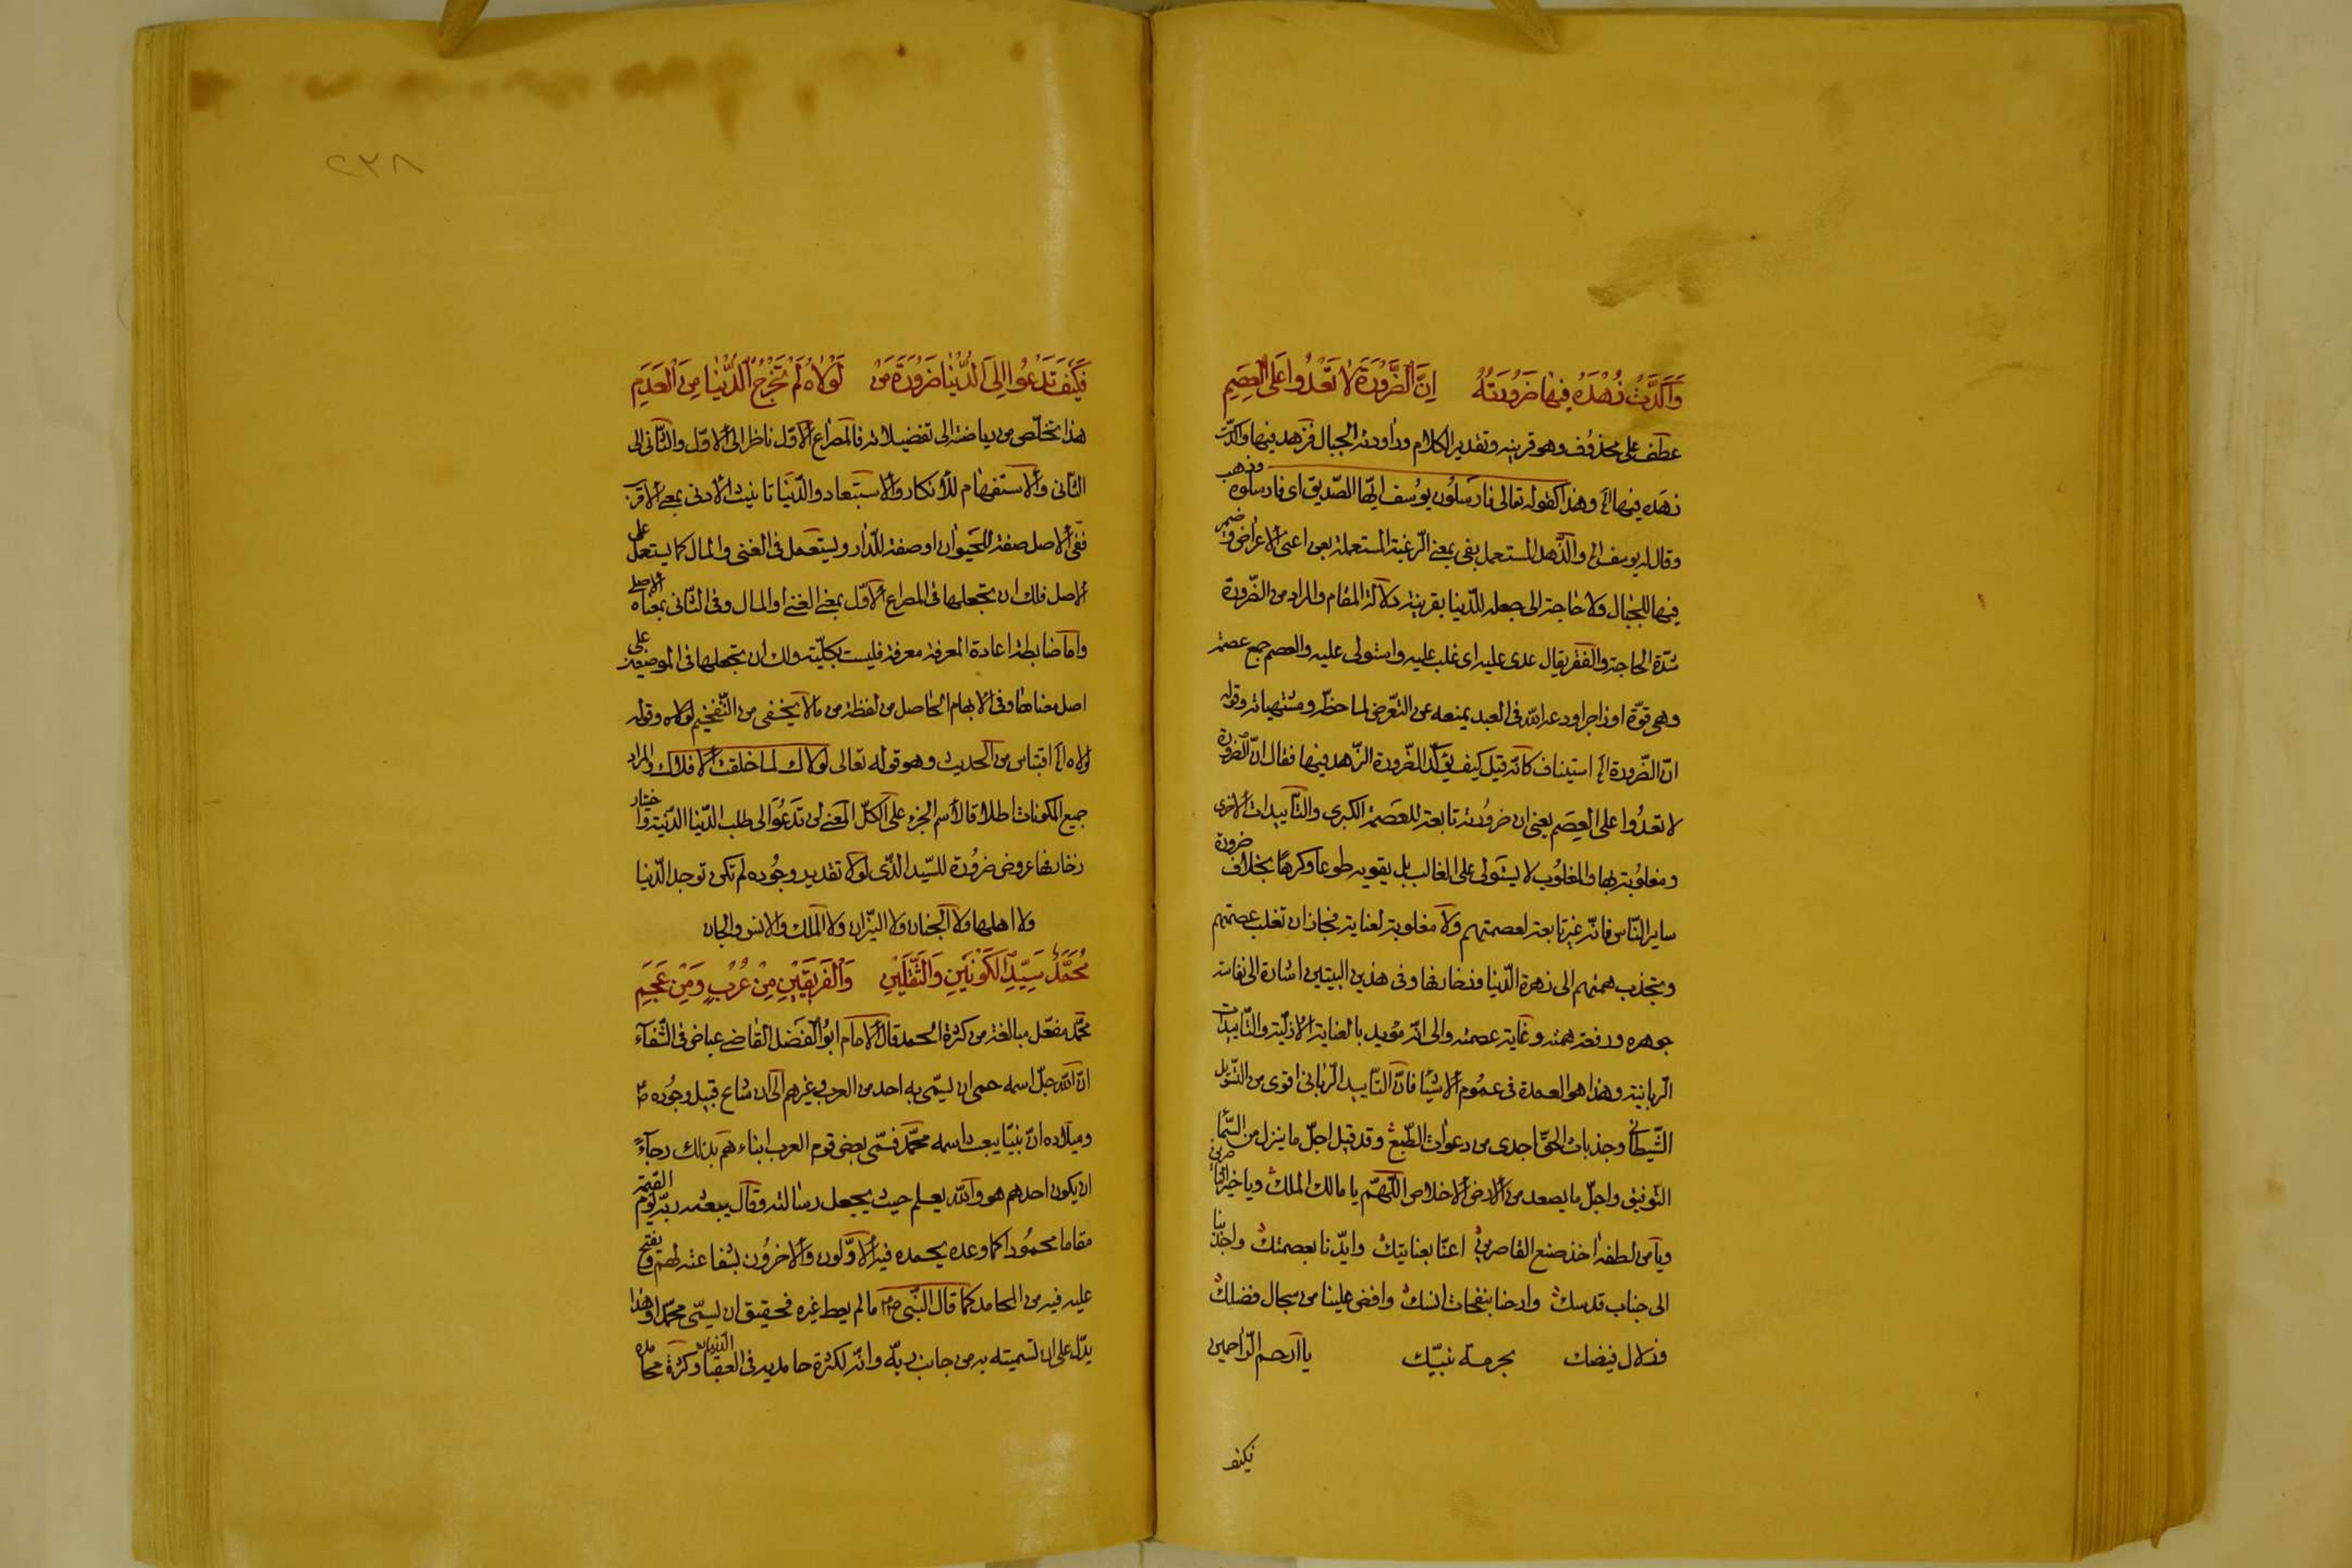 وَاَكَّدَتْ زُهْدَهُ فِيْهَا ضَرُوْرَتُهُ اِنَّ الضَّرُوْرَةَ لَا تَعْدُوْا عَلَى الْعِصَمِ
عطف على محذوف وهو قرينه وتقدير الكلام وراودته الجبال فزهد فيها واكدت
زهده فيها الخ وهذا كقوله تعالى فارسلون يوسف ايها الصديق اى فارسلوه وذهب
وقال له يوسف الى والزهد المستعمل بفى بمعنى الرغبة المستعملة بعن اعنى الاعراض وضمير
فيها للجبال ولا حاجة الى جعله للدنيا بقرينة دلالة المقام والمراد من الضرورة
شدة الحاجة والفقر يقال عدى عليه اى غلب عليه واستولى عليه والعصم جمع عصمة
وهى قوة او زاجر اودعه الله فى العبد يمنعه عن التعرض لما حظر ومشتهياته وقوله
ان الضرورة الخ استيناف كانه قيل كيف يؤكد الضرورة الزهد فيها فقال ان الضرورة
لا تعدوا على العصم يعنى ان ضرورته تابعة للعصمة الكبرى والتأييدات الاخرى
ومغلوبة بها والمغلوب لا يستولى على الغالب بل يقويه طوعا وكرها بخلاف ضرورة
ساير الناس فانه غير تابعة لعصمتهم ولا مغلوبة لعناية فجاز ان تغلب عصمتهم
وتجذب همتهم الى زهرة الدنيا وزخارفها وفى هذين البيتين اشارة الى نفاسة
جوهره ورفعة همته وغاية عصمته والى انه مؤيد بالعناية الازلية والتأييدات
الربانية وهذا هو العمدة فى عموم الاشيا فان التأييد الربانى اقوى من التسويل
الشيطانى وجذبات الحق اجدى من دعوات الطبع وقد قيل اجل ما ينزل من السما
التوفيق واجل ما يصعد من الارض الاخلاص اللهم يا مالك الملك ويا خير الناصرين
ويا من لطفه اخذ صنع القاصرين اعنا بعنايتك وايدنا بعصمتك واجذبنا
الى جناب قدسك وارحنا بنفحات انسك وافض علينا من سجال فضلك
وزلال فيضك بحرمة نبيك يا ارحم الراحمين
فكيف
٢٣٨
فَكَيْفَ تَدْعُوْا اِلَى الدُّنْيَا ضَرُوْرَةُ مَنْ لَوْلَاهُ لَمْ تَخْرُجِ الدُّنْيَا مِنَ الْعَدَمِ
هذا تخلص من رياضته الى تفضيلاته فالمصراع الاول ناظر الى الاول والثانى الى
الثانى والاستفهام للانكار والاستبعاد والدنيا تانيث الادنى بمعنى الاقرب
ففى الاصل صفة للحيوان او صفة للدار ويستعمل فى الغنى والمال كما يستعمل على
الاصل فلك ان تجعلها فى المصراع الاول بمعنى الغنى او المال وفى الثانى بمعناه الاصلى
واما ضابطة اعادة المعرفة معرفة فليست بكلية ولك ان تجعلها فى الموضعين على
اصل معناها وفى الابهام الحاصل من لفظة من ما لا يخفى من التفخيم لولاه وقوله
لولاه الخ اقتباس من الحديث وهو قوله تعالى لولاك لما خلقت الافلاك والمراد
جميع المكونات اطلاقا لاسم الجزء على الكل المعنى لن تدعو الى طلب الدنيا الدنية واختيار
زخارفها عروض ضرورة للسيد الذى لولا تقدير وجوده لم تكن توجد الدنيا
ولا اهلها ولا الجنان ولا النيران ولا الملك والانس والجان
مُحَمَّدٌ سَيِّدُ الْكَوْنَيْنِ وَالثَّقَلَيْنِ وَالْفَرِيْقَيْنِ مِنْ عُرْبٍ وَمِنْ عَجَمِ
محمد مفعل مبالغة من كثرة الحمد قال الامام ابو الفضل القاضى عياض فى الشفآء
ان الله جل اسمه حمى ان يسمى به احد من العرب وغيرهم الى ان شاع قبيل وجوده ص
وميلاده ان نبيا يبعث اسمه محمد فسمى بعض قوم العرب ابناءهم بذلك رجآءً
ان يكون احدهم هو والله يعلم حيث يجعل رسالته وقال يبعثه ربه يوم القيمة
مقاما محمودا كما وعده يحمده فيه الاولون والاخرون بشفاعته لهم ويفتح
عليه فيه من المحامد كما قال النبى ص م ما لم يعط غيره فحقيق ان يسمى محمدا وهذا
يدل على ان تسميته به من جانب ربه وانه لكثرة حامديه فى العقبا وكثرة محامده